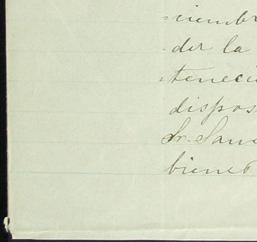 =iembr
der la
tenecie
dispos
Sr. San
bienes